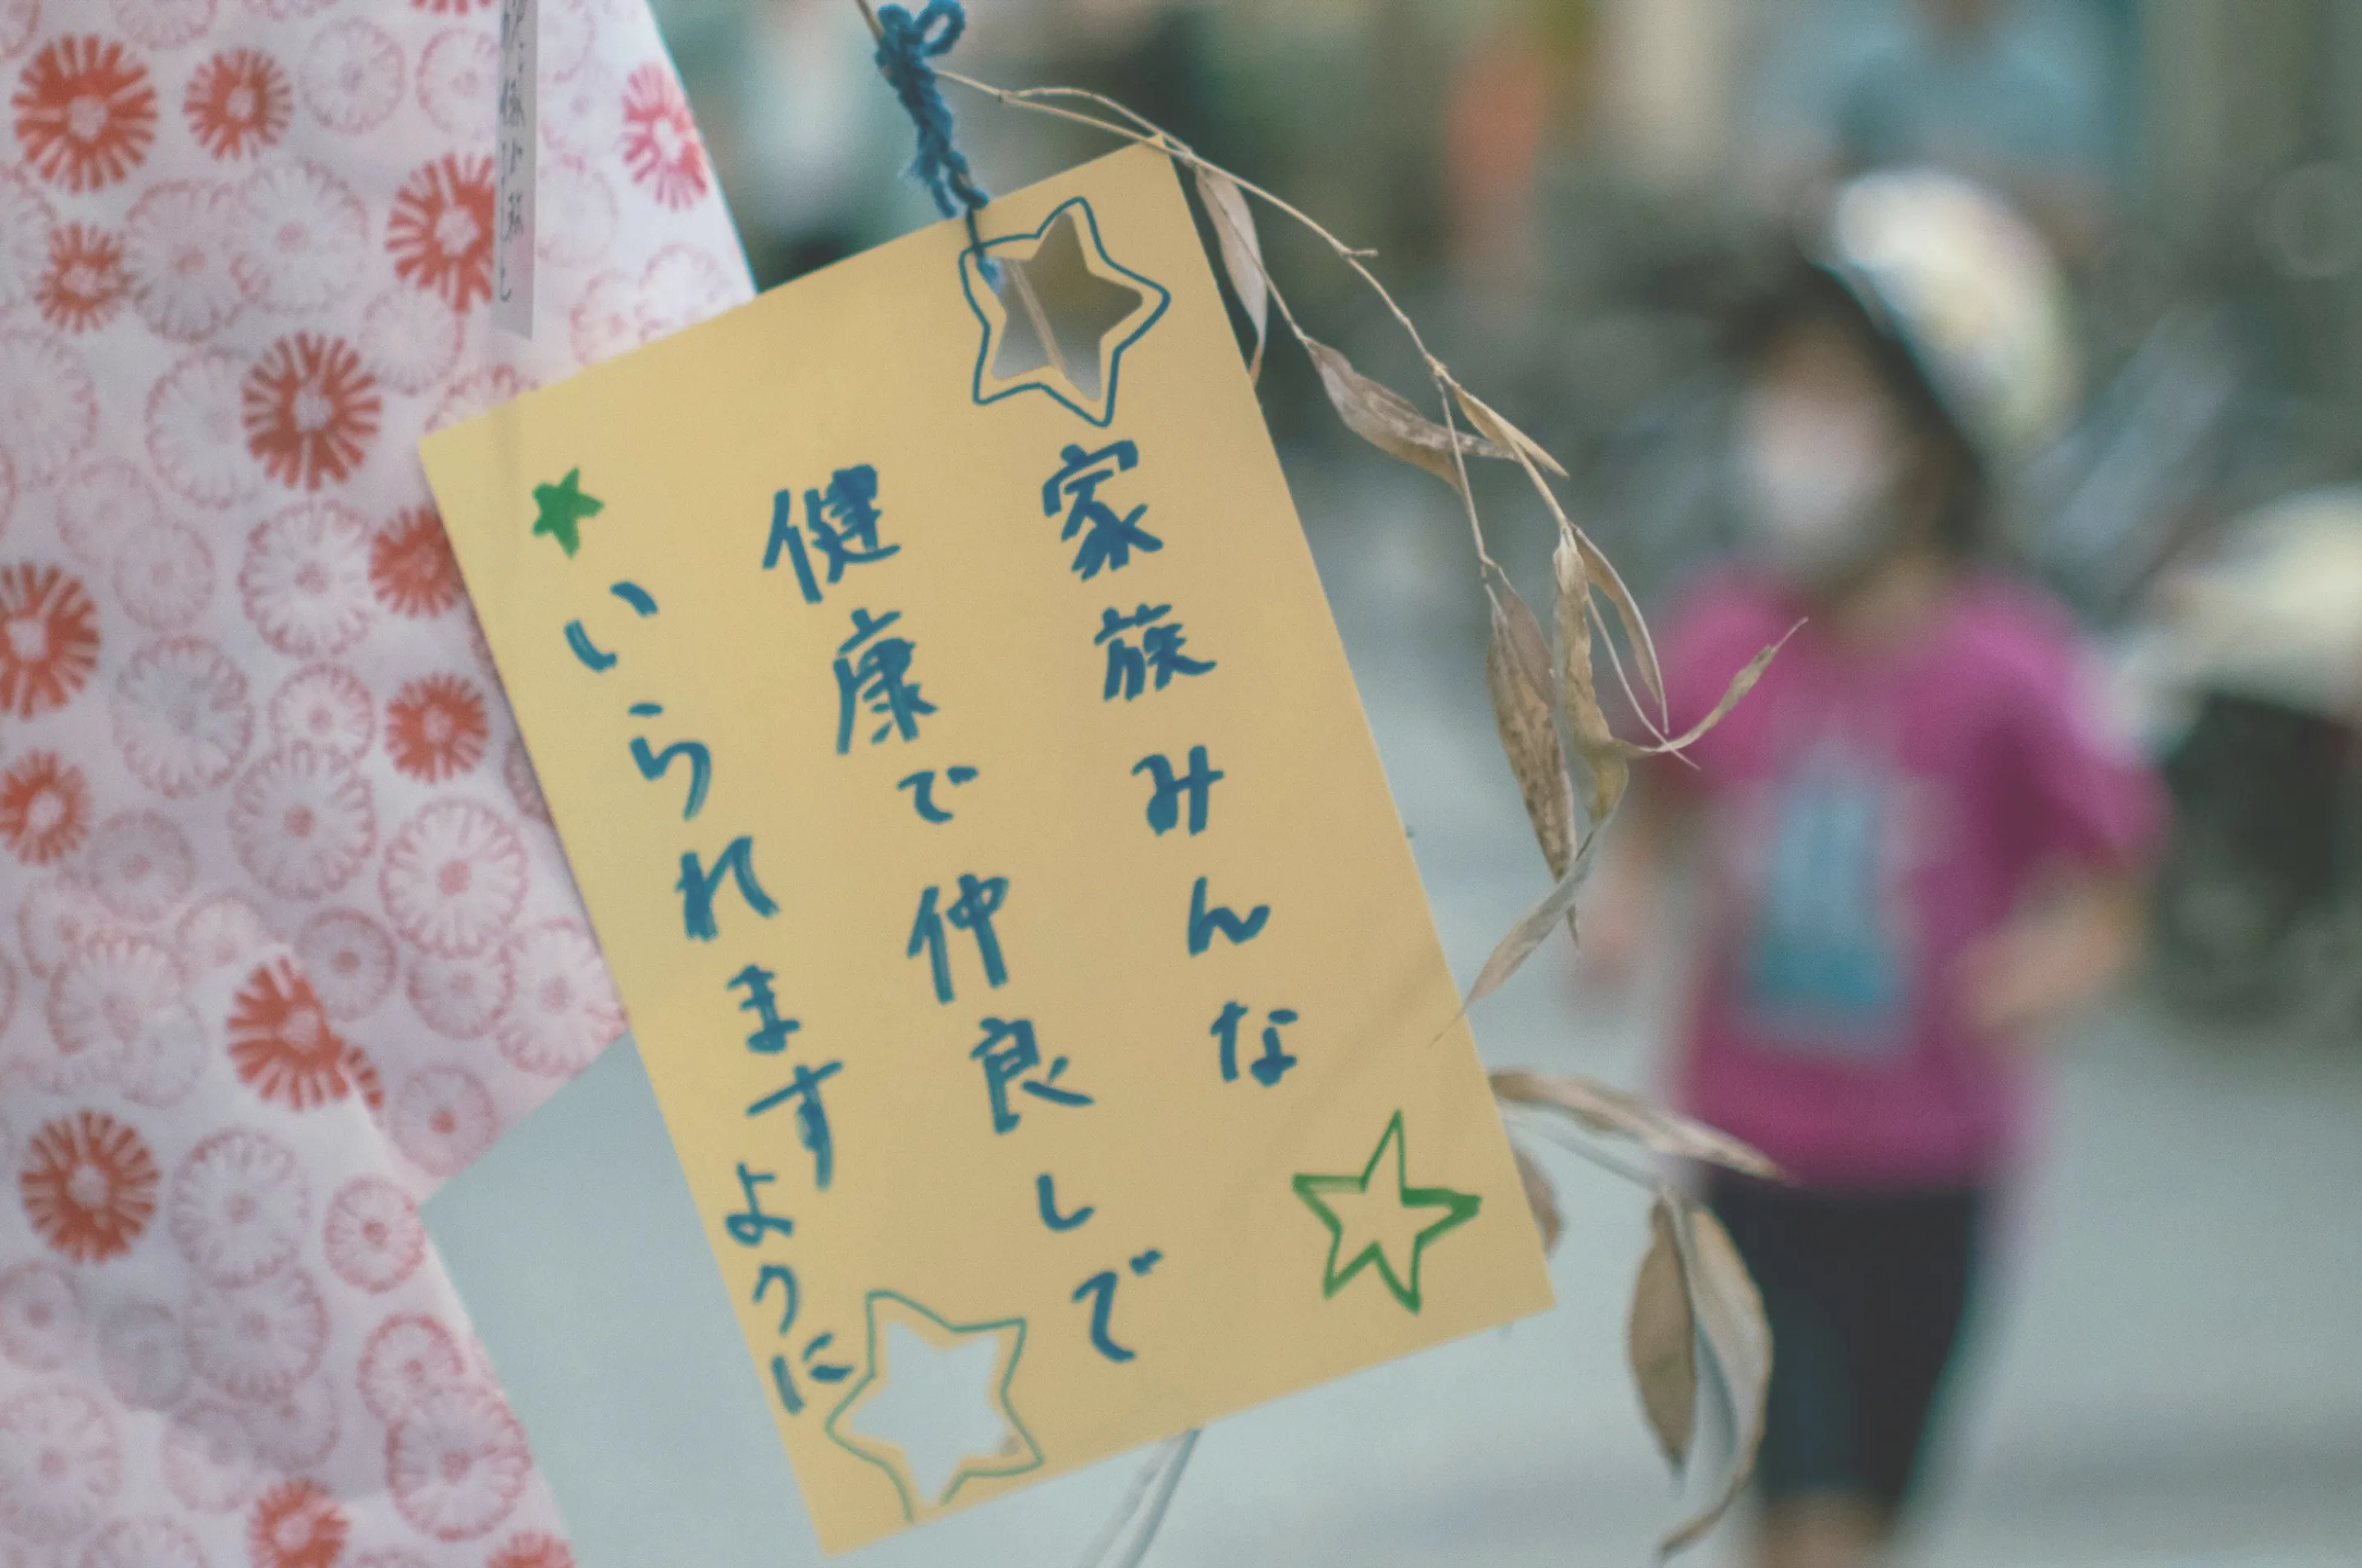 家族みんな
健康で仲良しで
いられますように